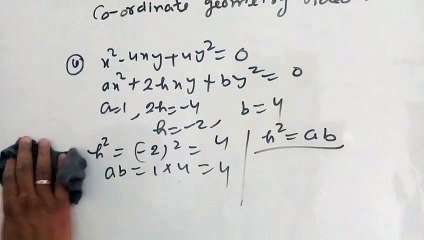 Co-ordinate geometry
6 x²-4xy+4y²=0
ax²+2hxy+by²=0
a=1, 2h=-4 b=4
h=-2,
h²=(-2)²=4
ab=1×4=4
h²=ab